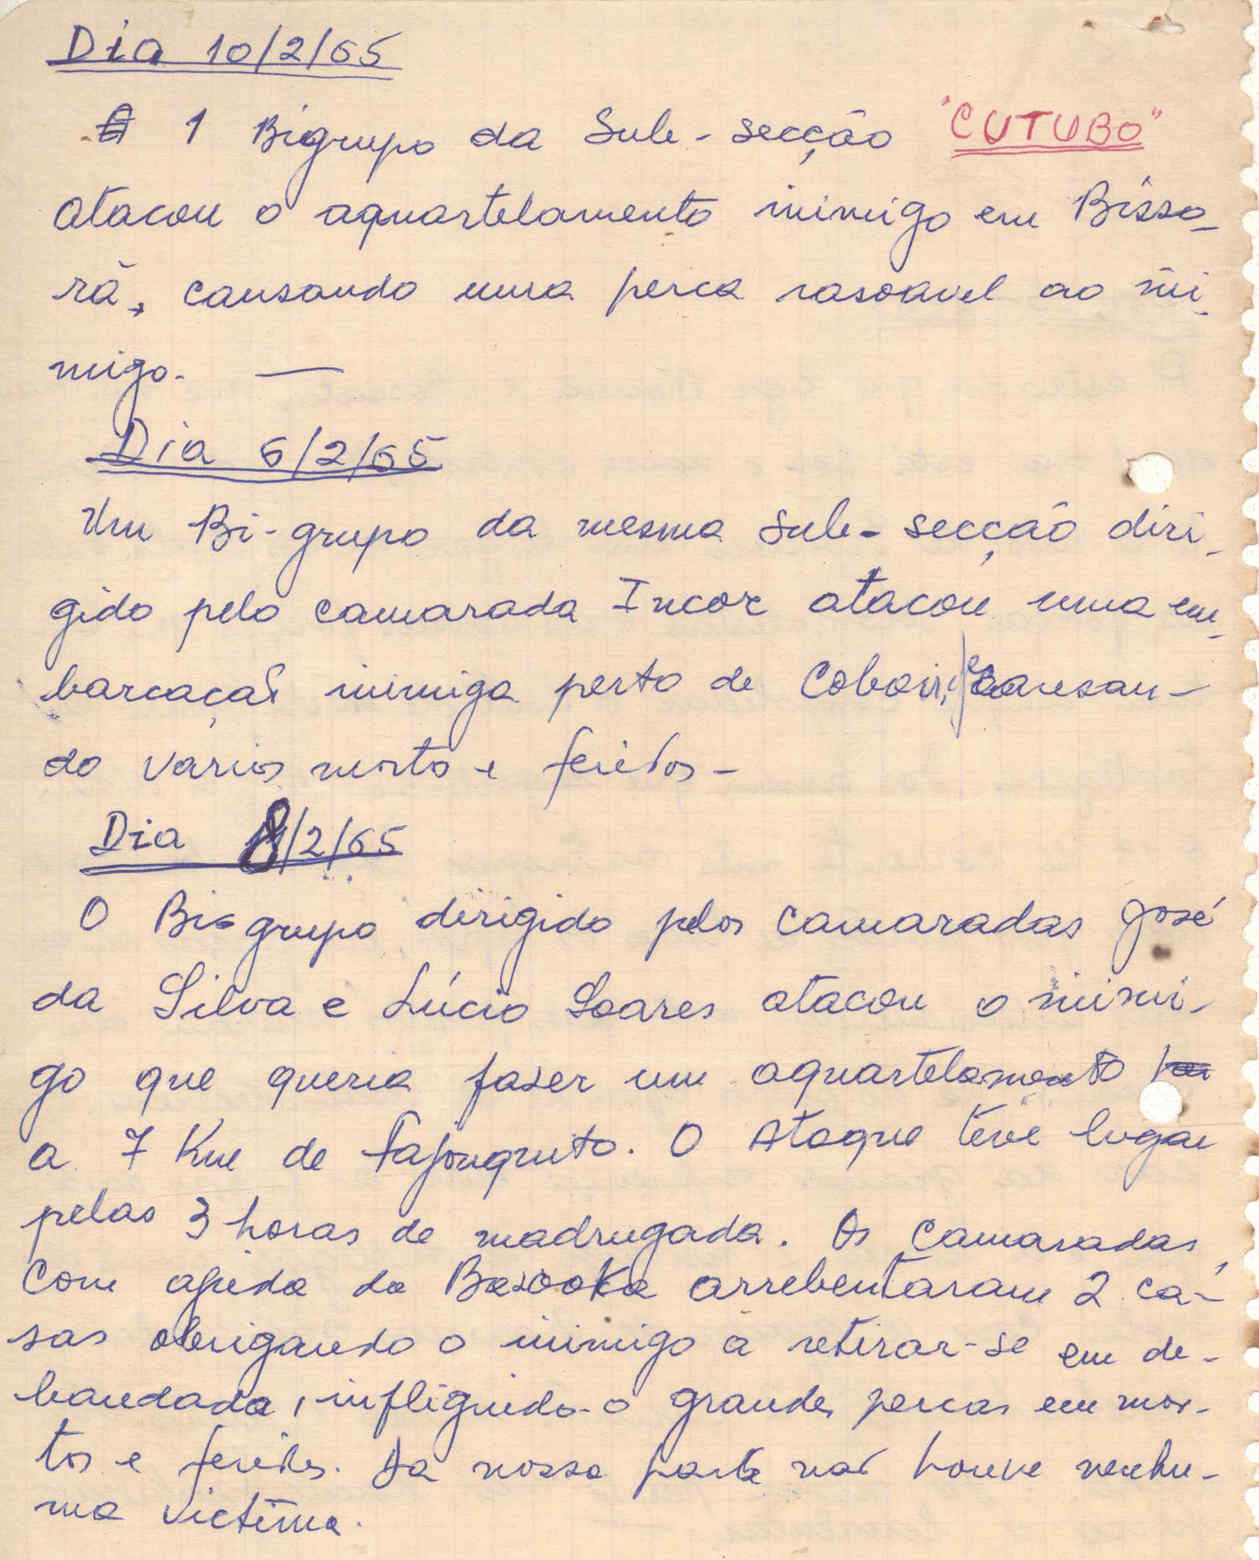 Dia 10/2/65
1 Bigrupo da Sub-secção "CUTUBO"
atacou o aquartelamento inimigo em Bisso-
rã, causando uma perca rasoavel ao ini-
migo. —
Dia 6/2/65
Um Bi-grupo da mesma Sub-secção diri-
gido pelo camarada Incor atacou uma em-
barcação inimiga perto de Coboi, causan-
do varios morto e feridos -
Dia 8/2/65
O Bi-grupo dirigido pelos camaradas José
da Silva e Lúcio Soares atacou o inimi-
go que queria faser um aquartelamento
a 7 Km de Fajonquito. O Ataque teve lugar
pelas 3 horas de madrugada. Os camaradas
com ajuda da Basooka arrebentaram 2 ca-
sas obrigando o inimigo a retirar-se em de-
bandada, infligindo-o grandes percas em mor-
tos e feridos. Da nossa parte não houve nenhu-
ma victima.